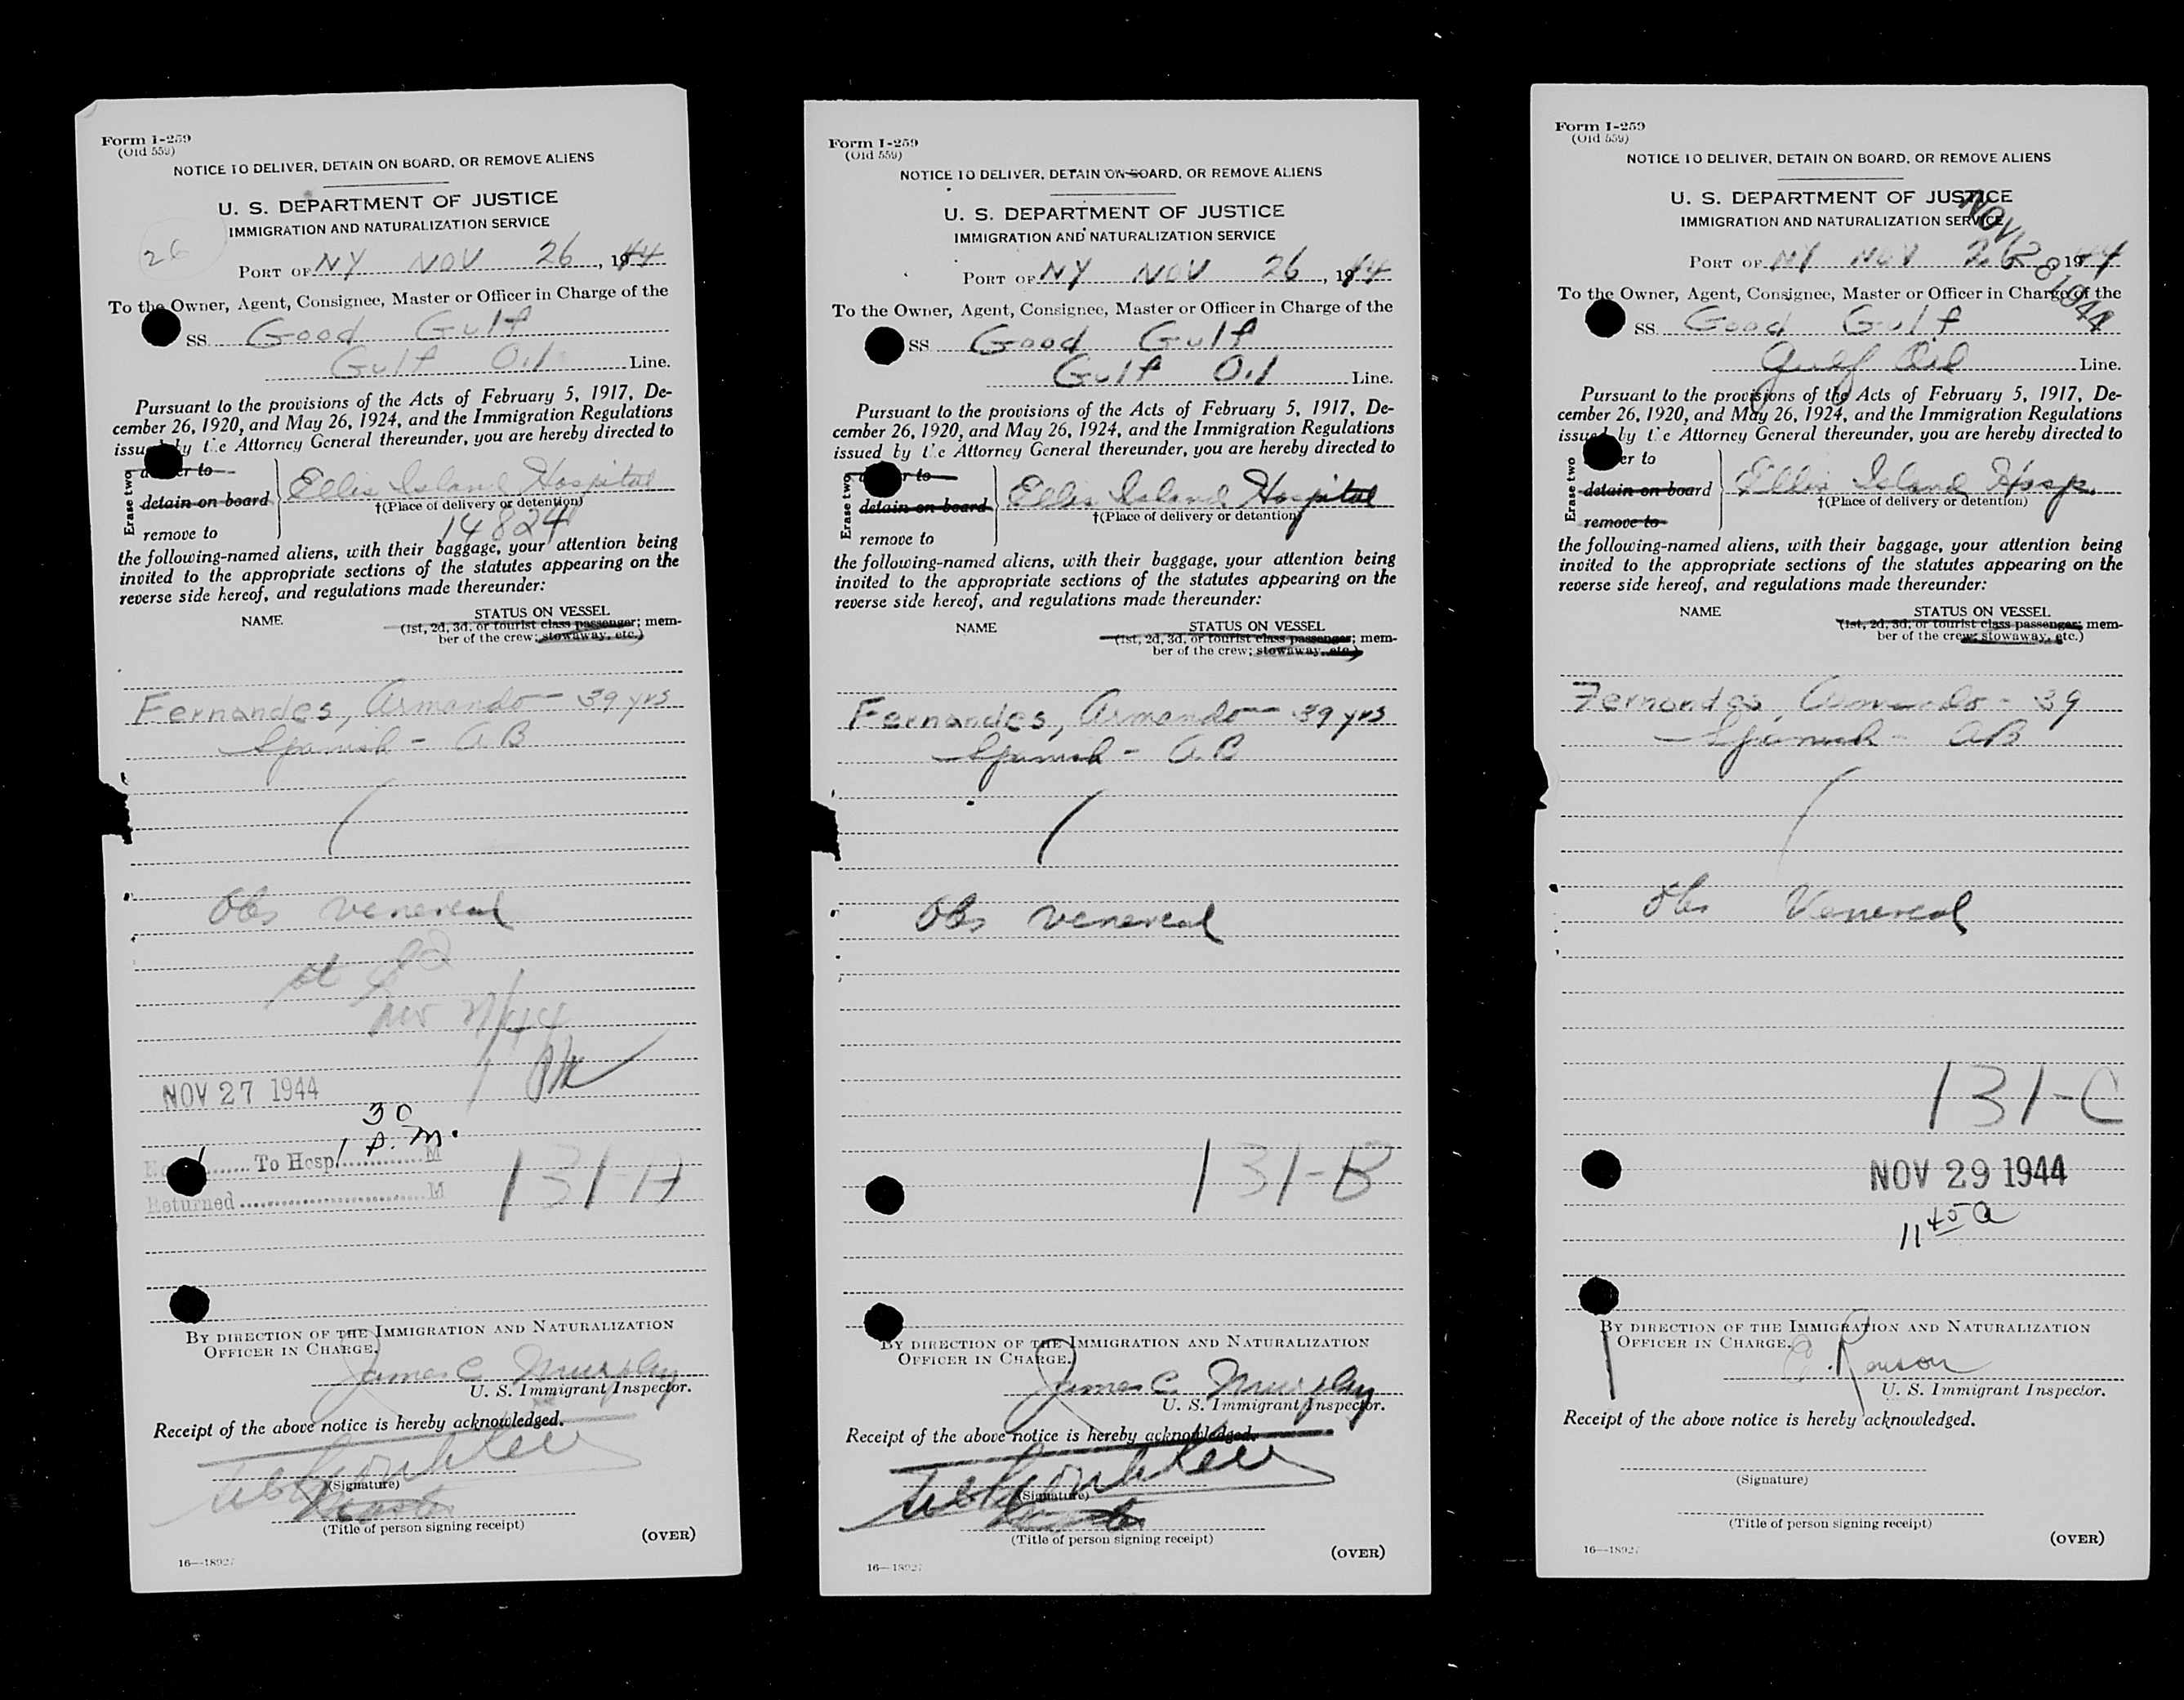 Form I-259
(Old 559)
NOTICE TO DELIVER, DETAIN ON BOARD, OR REMOVE ALIENS
U. S. DEPARTMENT OF JUSTICE
IMMIGRATION AND NATURALIZATION SERVICE
26
PORT OF NY NOV 26, 1944
To the Owner, Agent, Consignee, Master or Officer in Charge of the
SS Good Gulf
Gulf Oil Line.
Pursuant to the provisions of the Acts of February 5, 1917, De-
cember 26, 1920, and May 26, 1924, and the Immigration Regulations
issued by the Attorney General thereunder, you are hereby directed to
Erase two
er to
detain on board
remove to
Ellis Island Hospital
†(Place of delivery or detention)
14824
the following-named aliens, with their baggage, your attention being
invited to the appropriate sections of the statutes appearing on the
reverse side hereof, and regulations made thereunder:
NAME
STATUS ON VESSEL
(1st, 2d, 3d, or tourist class passenger; mem-
ber of the crew; stowaway, etc.)
Fernandes, Armando - 39 yrs
Spanish - AB
Obs venereal
Nov 27/44
NOV 27 1944
To Hosp 1 30 P. M. M
Returned M
131-A
BY DIRECTION OF THE IMMIGRATION AND NATURALIZATION
OFFICER IN CHARGE.
James C Murphy
U. S. Immigrant Inspector.
Receipt of the above notice is hereby acknowledged.
(Signature)
Master
(Title of person signing receipt)
(OVER)
16—18927
Form I-259
(Old 559)
NOTICE TO DELIVER, DETAIN ON BOARD, OR REMOVE ALIENS
U. S. DEPARTMENT OF JUSTICE
IMMIGRATION AND NATURALIZATION SERVICE
PORT OF NY NOV 26, 1944
To the Owner, Agent, Consignee, Master or Officer in Charge of the
SS Good Gulf
Gulf Oil Line.
Pursuant to the provisions of the Acts of February 5, 1917, De-
cember 26, 1920, and May 26, 1924, and the Immigration Regulations
issued by the Attorney General thereunder, you are hereby directed to
Erase two
r to
detain on board
remove to
Ellis Island Hospital
†(Place of delivery or detention)
the following-named aliens, with their baggage, your attention being
invited to the appropriate sections of the statutes appearing on the
reverse side hereof, and regulations made thereunder:
NAME
STATUS ON VESSEL
(1st, 2d, 3d, or tourist class passenger; mem-
ber of the crew; stowaway, etc.)
Fernandes, Armando - 39 yrs
Spanish - AB
Obs venereal
131-B
BY DIRECTION OF THE IMMIGRATION AND NATURALIZATION
OFFICER IN CHARGE.
James C. Murphy
U. S. Immigrant Inspector.
Receipt of the above notice is hereby acknowledged.
(Signature)
Master
(Title of person signing receipt)
(OVER)
16—18927
Form I-259
(Old 559)
NOTICE TO DELIVER, DETAIN ON BOARD, OR REMOVE ALIENS
U. S. DEPARTMENT OF JUSTICE
IMMIGRATION AND NATURALIZATION SERVICE
NOV 28 1944
PORT OF NY NOV 26 1944
To the Owner, Agent, Consignee, Master or Officer in Charge of the
SS Good Gulf
Gulf Oil Line.
Pursuant to the provisions of the Acts of February 5, 1917, De-
cember 26, 1920, and May 26, 1924, and the Immigration Regulations
issued by the Attorney General thereunder, you are hereby directed to
Erase two
er to
detain on board
remove to
Ellis Island Hosp.
†(Place of delivery or detention)
the following-named aliens, with their baggage, your attention being
invited to the appropriate sections of the statutes appearing on the
reverse side hereof, and regulations made thereunder:
NAME
STATUS ON VESSEL
(1st, 2d, 3d, or tourist class passenger; mem-
ber of the crew; stowaway, etc.)
Fernandes, Armando - 39
Spanish - AB
Obs Venereal
131-C
NOV 29 1944
11 45 a
BY DIRECTION OF THE IMMIGRATION AND NATURALIZATION
OFFICER IN CHARGE.
U. S. Immigrant Inspector.
Receipt of the above notice is hereby acknowledged.
(Signature)
(Title of person signing receipt)
(OVER)
16—18927